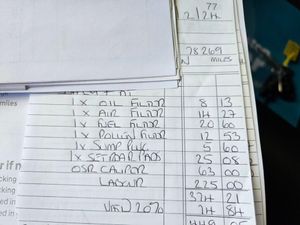 77
2/24
78269
MILES
miles
1 x OIL FILTER 8 13
1 x AIR FILTER 14 27
1 x FUEL FILTER 20 60
1 x POLLEN FILTER 12 53
1 x SUMP PLUG 5 60
1 x SET REAR PADS 25 08
OSR CALIPER 63 00
LABOUR 225 00
374 21
VAT 20% 74 84
449 05
r if n
cking
cking
ed in
ed in